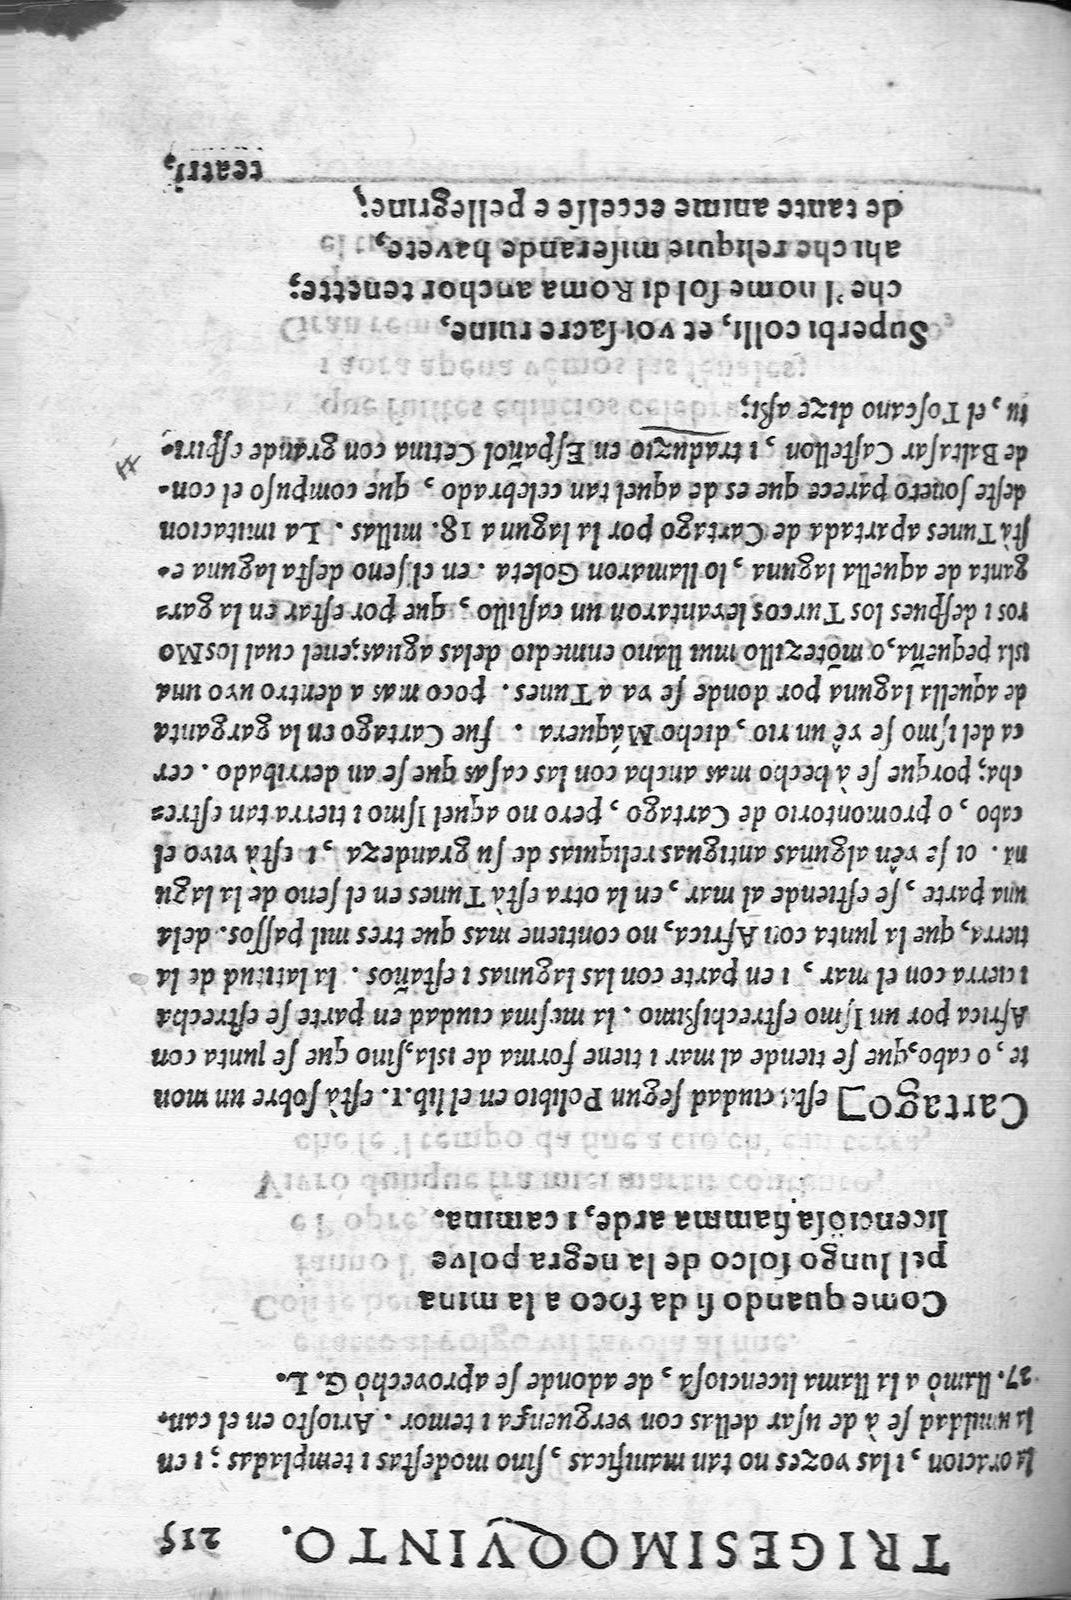 TRIGESIMOQVINTO. 215
la oracion, i las vozes no tan manificas, sino modestas i templadas; i en
la umildad se à de usar dellas con verguença i temor. Ariosto en el can-
27. llamò a la llama licenciosa, de adonde se aprovechò G. L.
Come quando si da foco a la mina
pel lungo solco de la negra polve
licenciosa fiamma arde, i camina.
Cartago] esta ciudad segun Polibio en el lib. 1. està sobre un mon
te, o cabo, que se tiende al mar i tiene forma de isla, sino que se junta con
Africa por un Ismo estrechissimo. la mesma ciudad en parte se estrecha
i cierra con el mar, i en parte con las lagunas i estaños. la latitud de la
tierra, que la junta con Africa, no contiene mas que tres mil passos. dela
una parte, se estiende al mar, en la otra està Tunes en el seno de la lagu
na. oi se vên algunas antiguas reliquias de su grandeza, i està vivo el
cabo, o promontorio de Cartago, pero no aquel Ismo i tierra tan estre-
cha; porque se à hecho mas ancha con las casas que se an derribado. cer
ca del ismo se vê un rio, dicho Máquera. fue Cartago en la garganta
de aquella laguna por donde se va a Tunes. poco mas a dentro uvo una
isla pequeña, o mõtezillo mui llano enmedio delas aguas; enel cual los Mo
ros i despues los Turcos levantaron un castillo, que por estar en la gar-
ganta de aquella laguna, lo llamaron Goleta. en el seno desta laguna e-
stà Tunes apartada de Cartago por la laguna 18. millas. La imitacion
deste soneto parece que es de aquel tan celebrado, que compuso el con-
de Baltasar Castellon, i traduzio en Español Cetina con grande espiri-
tu, el Toscano dize assi;
Superbi colli, et voi sacre ruine,
che'l nome sol di Roma anchor tenette;
ahi che reliquie miserande havete,
de tante anime eccelse e pellegrine;
teatri,